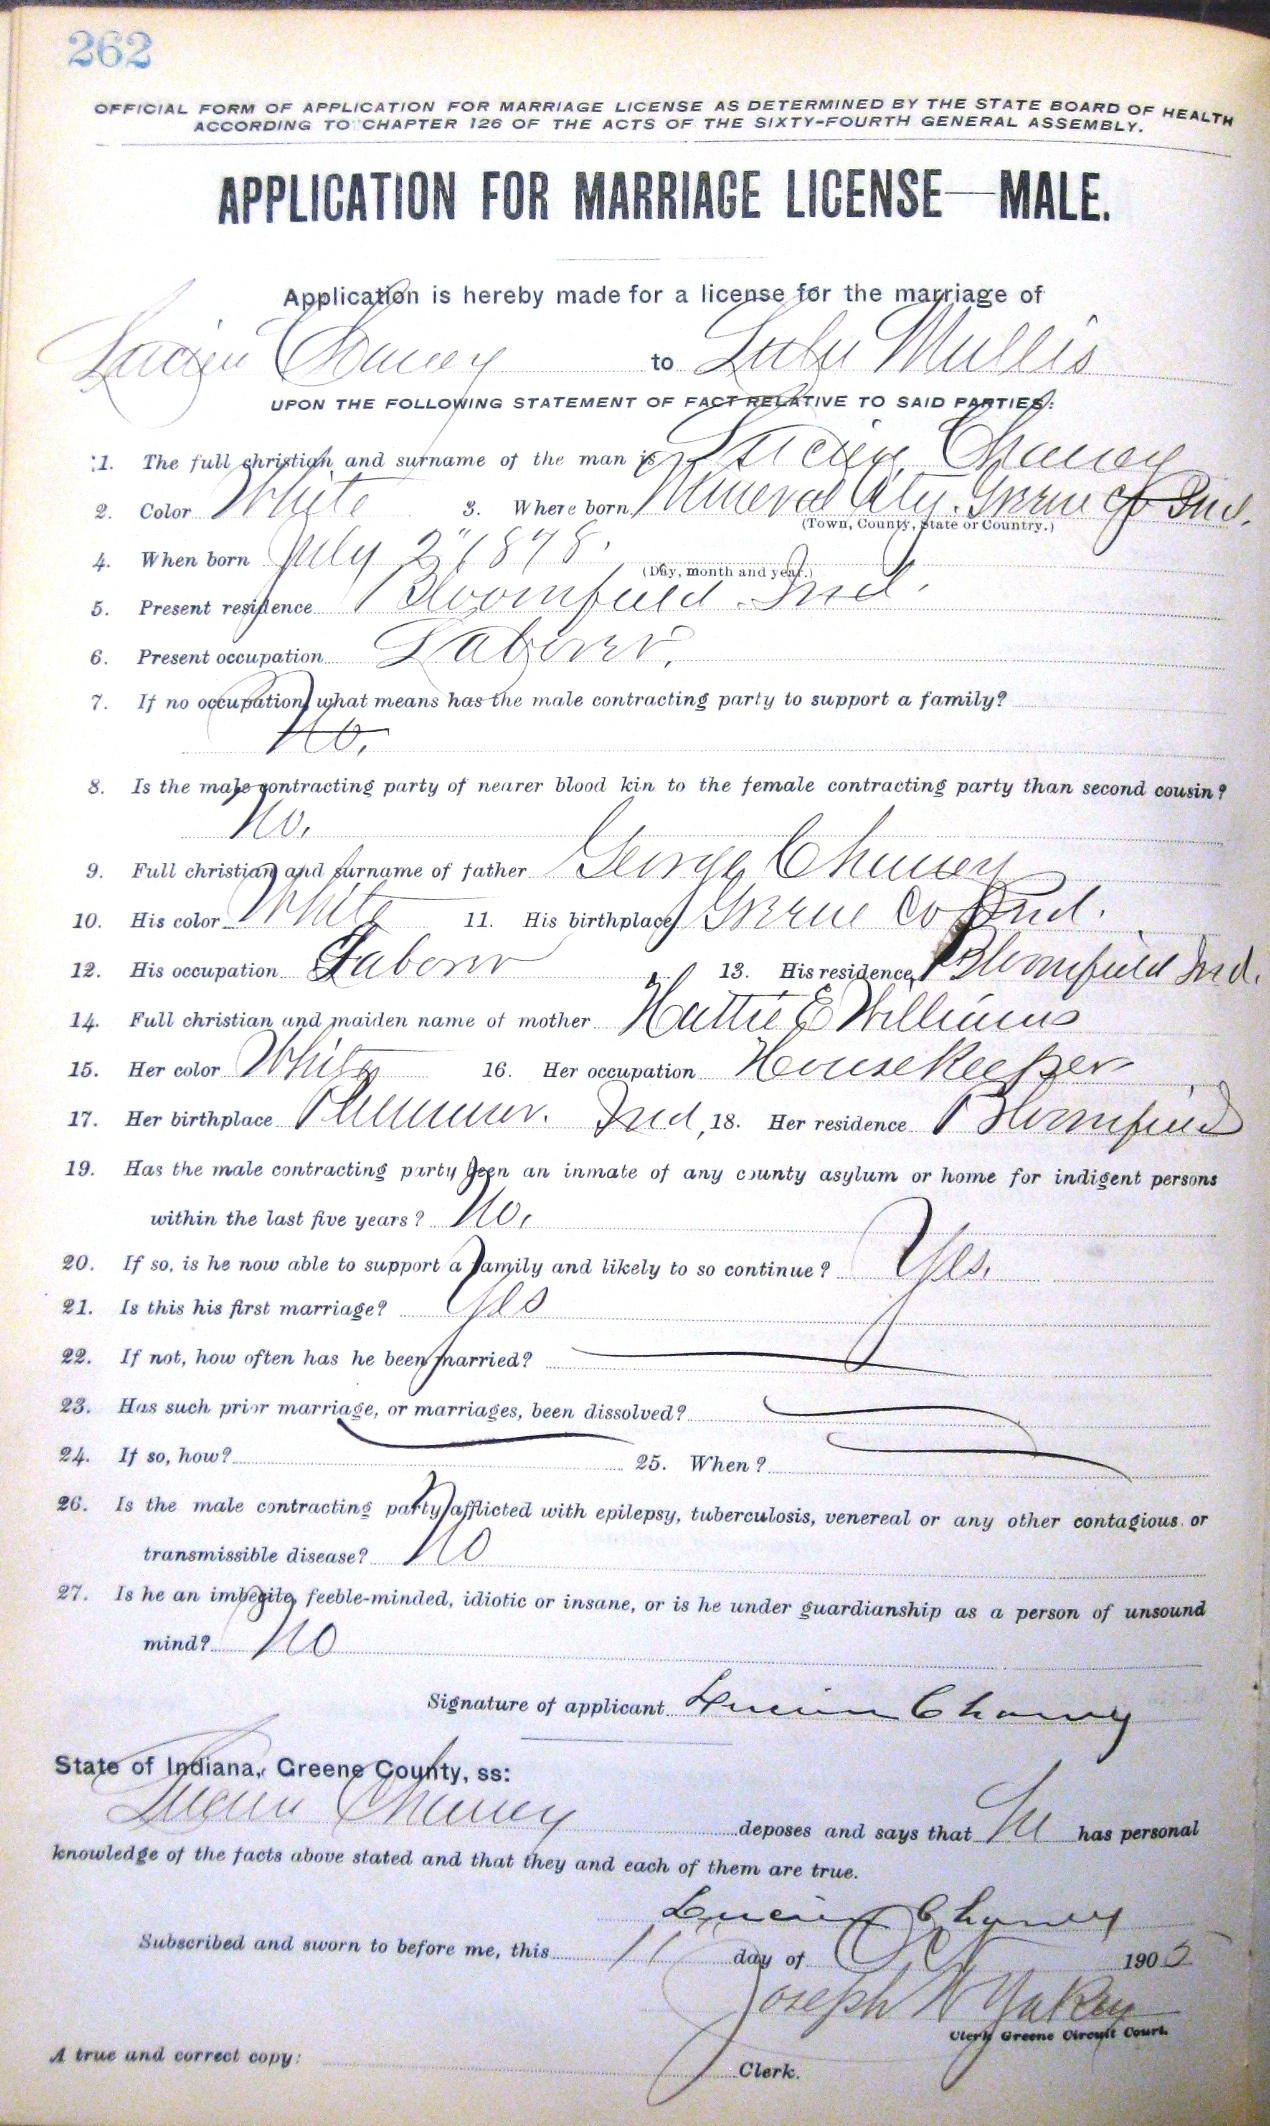 262
OFFICIAL FORM OF APPLICATION FOR MARRIAGE LICENSE AS DETERMINED BY THE STATE BOARD OF HEALTH
ACCORDING TO CHAPTER 126 OF THE ACTS OF THE SIXTY-FOURTH GENERAL ASSEMBLY.
APPLICATION FOR MARRIAGE LICENSE—MALE.
Application is hereby made for a license for the marriage of
Lucien Chaney to Lulu Mullis
UPON THE FOLLOWING STATEMENT OF FACT RELATIVE TO SAID PARTIES:
1. The full christian and surname of the man is Lucien Chaney
2. Color White 3. Where born Mineral City. Greene Co Ind.
(Town, County, State or Country.)
4. When born July 2" 1878.
(Day, month and year.)
5. Present residence Bloomfield Ind.
6. Present occupation Laborer.
7. If no occupation, what means has the male contracting party to support a family?
No.
8. Is the male contracting party of nearer blood kin to the female contracting party than second cousin?
No.
9. Full christian and surname of father George Chaney
10. His color White 11. His birthplace Greene Co Ind.
12. His occupation Laborer 13. His residence Bloomfield Ind.
14. Full christian and maiden name of mother Hattie E Williams
15. Her color White 16. Her occupation Housekeeper
17. Her birthplace Plummer. Ind, 18. Her residence Bloomfield
19. Has the male contracting party been an inmate of any county asylum or home for indigent persons
within the last five years? No.
20. If so, is he now able to support a family and likely to so continue? Yes.
21. Is this his first marriage? Yes
22. If not, how often has he been married?
23. Has such prior marriage, or marriages, been dissolved?
24. If so, how? 25. When?
26. Is the male contracting party afflicted with epilepsy, tuberculosis, venereal or any other contagious or
transmissible disease? No
27. Is he an imbecile, feeble-minded, idiotic or insane, or is he under guardianship as a person of unsound
mind? No
Signature of applicant Lucien Chaney
State of Indiana, Greene County, ss:
Lucien Chaney deposes and says that he has personal
knowledge of the facts above stated and that they and each of them are true.
Lucien Chaney
Subscribed and sworn to before me, this 11 day of Oct 1905
Joseph W Yakey
Clerk Greene Circuit Court.
A true and correct copy: Clerk.